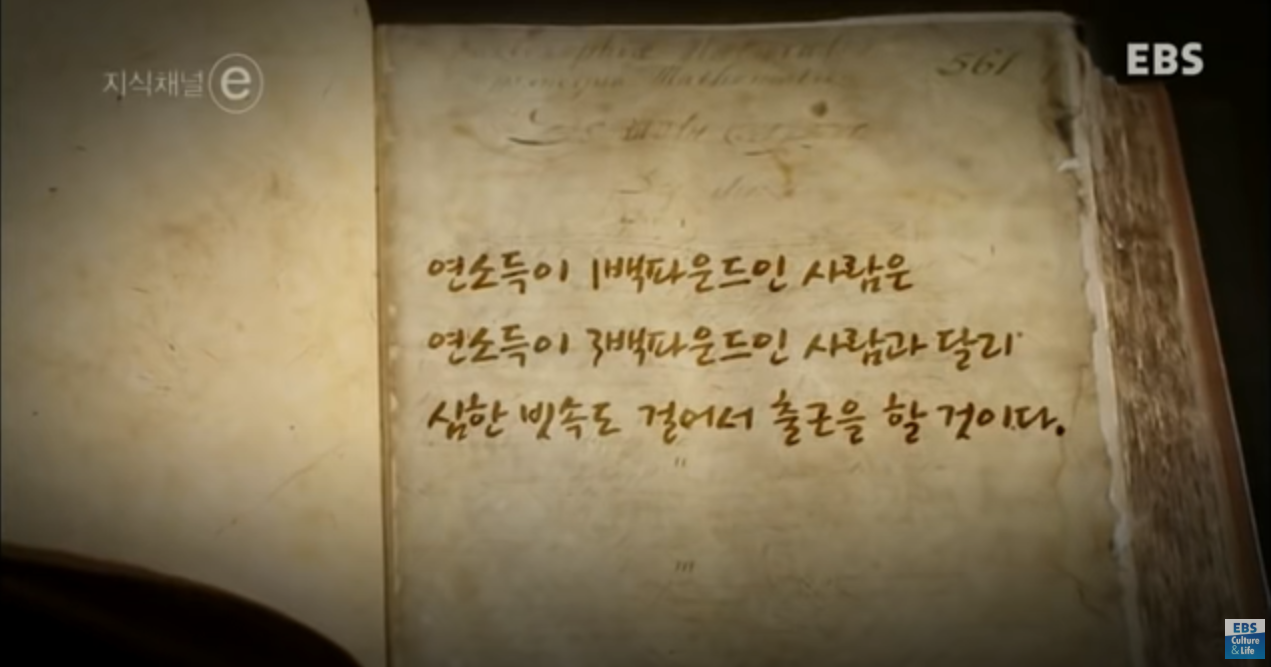 지식채널 e
EBS
561
연소득이 1백파운드인 사람은
연소득이 3백파운드인 사람과 달리
심한 빗속도 걸어서 출근을 할 것이다.
EBS
Culture
& Life